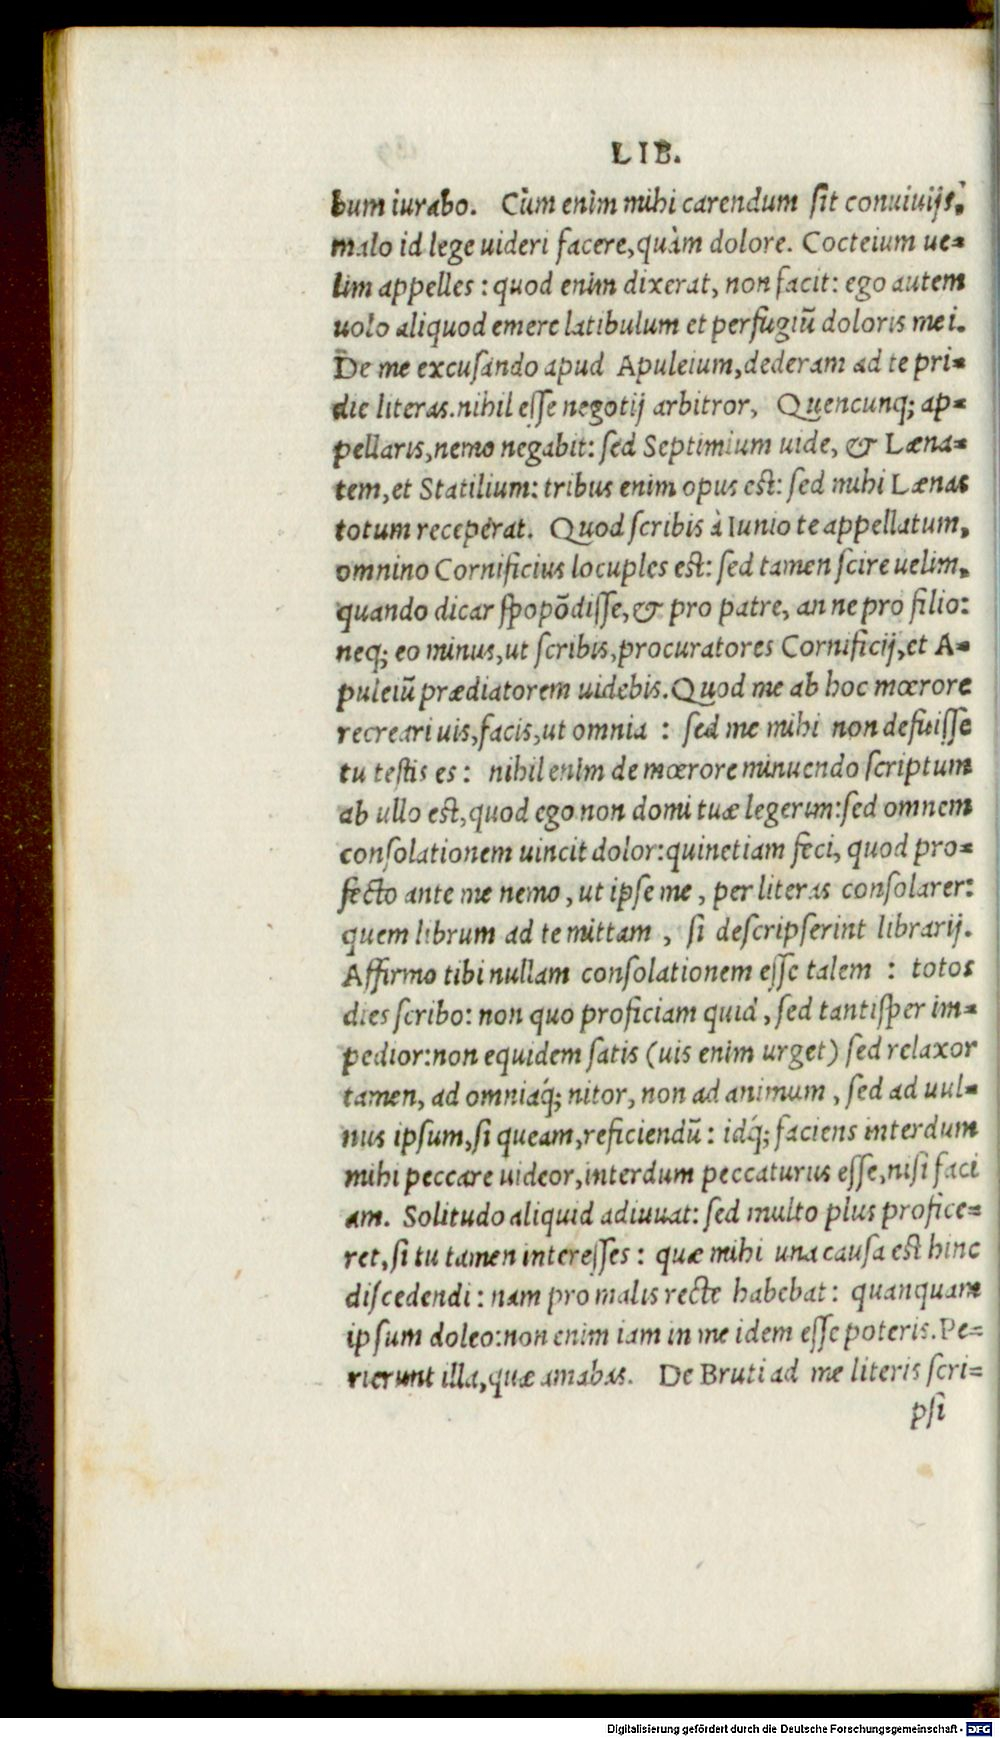 LIB.
bum iurabo. Cùm enim mihi carendum sit conuiuijs,
malo id lege uideri facere, quàm dolore. Cocteium ue=
lim appelles: quod enim dixerat, non facit: ego autem
uolo aliquod emere latibulum et perfugiū doloris mei.
De me excusando apud Apuleium, dederam ad te pri=
die literas. nihil esse negotij arbitror, Quencunq; ap=
pellaris, nemo negabit: sed Septimium uide, & Læna=
tem, et Statilium: tribus enim opus est: sed mihi Lænas
totum receperat. Quod scribis à Iunio te appellatum,
omnino Cornificius locuples est: sed tamen scire uelim,
quando dicar spopōdisse, & pro patre, an ne pro filio:
neq; eo minus, ut scribis, procuratores Cornificij, et A=
puleiū prædiatorem uidebis. Quod me ab hoc mœrore
recreari uis, facis, ut omnia : sed me mihi non defuisse
tu testis es: nihil enim de mœrore minuendo scriptum
ab ullo est, quod ego non domi tuæ legerim: sed omnem
consolationem uincit dolor: quinetiam feci, quod pro=
fecto ante me nemo, ut ipse me, per literas consolarer:
quem librum ad te mittam, si descripserint librarij.
Affirmo tibi nullam consolationem esse talem : totos
dies scribo: non quo proficiam quid, sed tantisper im=
pedior: non equidem satis (uis enim urget) sed relaxor
tamen, ad omniaq́; nitor, non ad animum, sed ad uul=
nus ipsum, si queam, reficiendū: idq́; faciens interdum
mihi peccare uideor, interdum peccaturus esse, nisi faci
am. Solitudo aliquid adiuuat: sed multo plus profice=
ret, si tu tamen interesses: quæ mihi una causa est hinc
discedendi: nam pro malis recte habebat: quanquam
ipsum doleo: non enim iam in me idem esse poteris. Pe=
rierunt illa, quæ amabas. De Bruti ad me literis scri=
psi
Digitalisierung gefördert durch die Deutsche Forschungsgemeinschaft - DFG